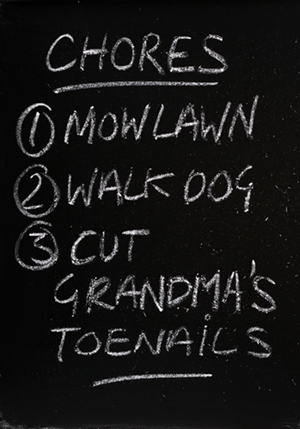 CHORES
1 MOW LAWN
2 WALK DOG
3 CUT
GRANDMA'S
TOENAiLS